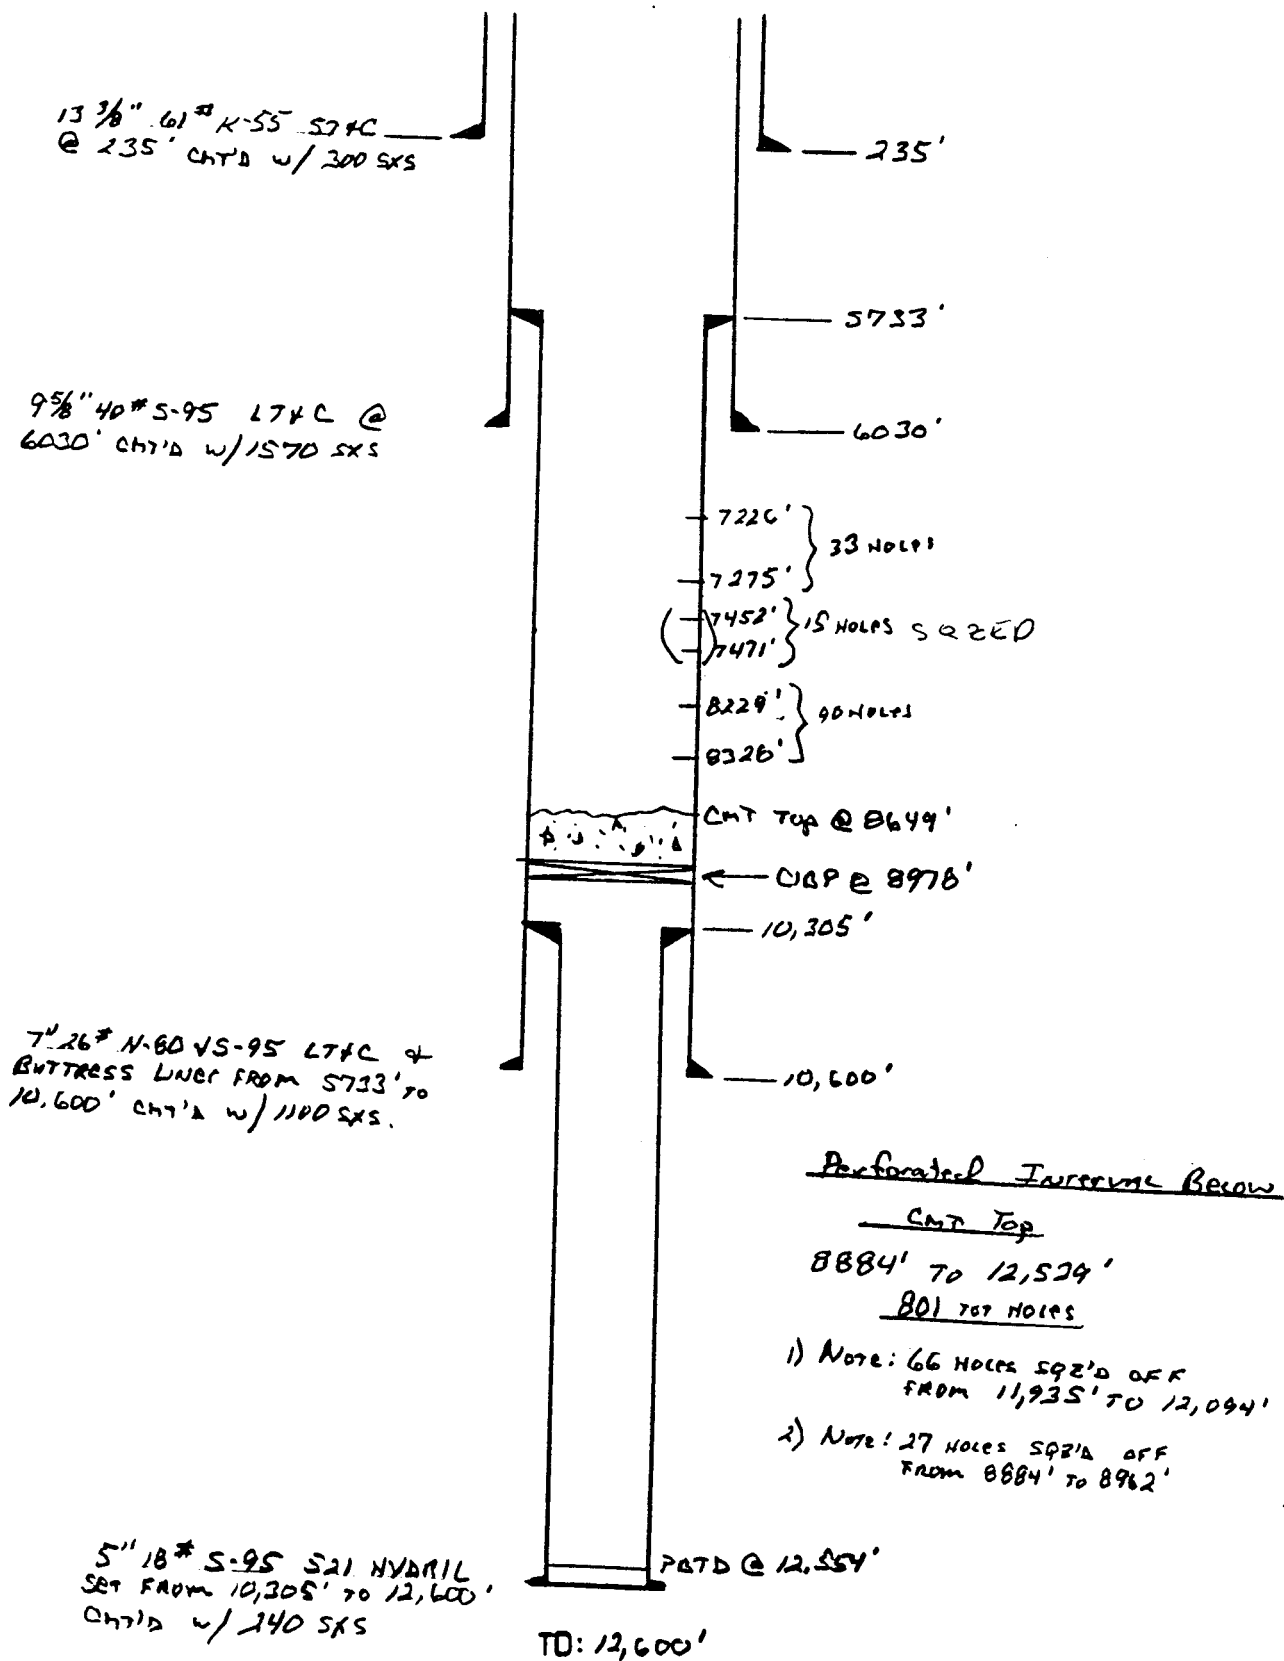 13 3/8" 61# K-55 ST&C
@ 235' CMT'D w/ 300 SXS
235'
5733'
9 5/8" 40# S-95 LT&C @
6030' CMT'D w/ 1570 SXS
6030'
7226'
33 HOLES
7275'
7452'
15 HOLES SQZED
7471'
8229'
90 HOLES
8328'
CMT TOP @ 8649'
CIBP @ 8978'
10,305'
7" 26# N-80 & S-95 LT&C &
BUTTRESS LINER FROM 5733' TO
10,600' CMT'D w/ 1100 SXS.
10,600'
Perforated INTERVAL BELOW
CMT TOP
8884' TO 12,529'
801 TOT HOLES
1) NOTE: 66 HOLES SQZ'D OFF
FROM 11,935' TO 12,094'
2) NOTE: 27 HOLES SQZ'D OFF
FROM 8884' TO 8962'
5" 18# S-95 521 HYDRIL
SET FROM 10,305' TO 12,600'
CMT'D w/ 240 SXS
PBTD @ 12,554'
TD: 12,600'